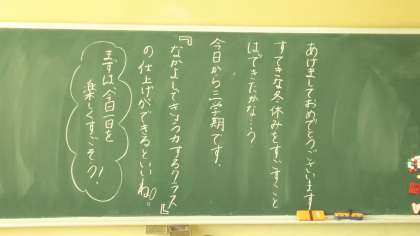 あけましておめでとうございます
すてきな冬休みをすごすこと
はできたかな?
今日から三学期です。
『なかよしできょう力するクラス』
の仕上げができるといいね♡。
まずは今日一日を
楽しくすごそう!